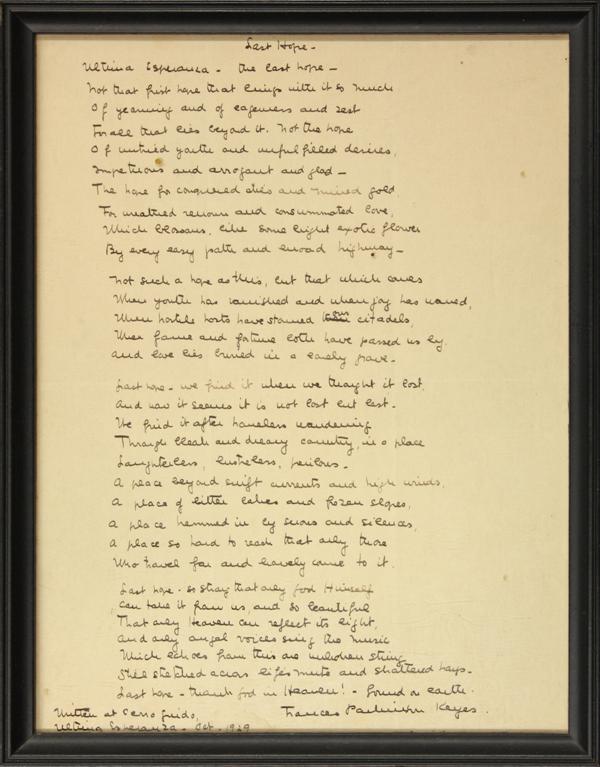 Last Hope -
Ultima Esperanza - the last hope -
Not that first hope that brings with it so much
Of yearning and of eagerness and zest
For all that lies beyond it. Not the hope
Of untried youth and unfulfilled desires,
Impetuous and arrogant and glad -
The hope for conquered cities and mined gold,
For renown and consummated love,
Which blossoms, like some bright exotic flower
By every easy path and broad highway -
Not such a hope as this, but that which comes
When youth has vanished and when joy has waned,
When hostile hosts have stormed our citadels,
When fame and fortune both have passed us by,
And love lies buried in a lonely grave -
Last hope - we find it when we thought it lost,
And now it seems it is not lost but last -
We find it after homeless wandering
Through bleak and dreary country, in a place
Laughterless, lustreless, perilous -
A place beyond swift currents and high winds,
A place of bitter lakes and frozen slopes,
A place hemmed in by snows and silences,
A place so hard to reach that only those
Who travel far and bravely come to it.
Last hope - so strong that only God Himself
Can take it from us, and so beautiful
That only Heaven can reflect its light,
And only angel voices sing the music
Which echoes from this one unbroken string
Still stretched across life's mute and shattered harp -
Last hope - thank God in Heaven! - found on earth.
Written at Cerro Guido, Frances Parkinson Keyes.
Ultima Esperanza - Oct - 1929